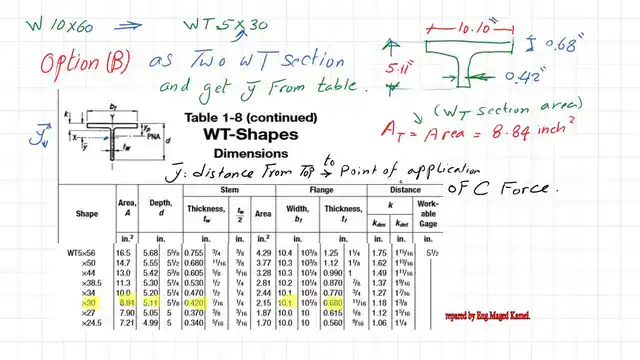 W 10x60 ⇒ WT 5x30
Option (B) as Two WT section
and get ȳ From table.
10.10"
0.68"
5.11"
0.42"
(WT section area)
A_T = Area = 8.84 inch²
Table 1-8 (continued)
WT-Shapes
Dimensions
k b_f
ȳ X X y_p PNA d
ȳ t_w
ȳ: distance From Top to → Point of application
OF C Force.
Shape Area, A Depth, d Stem Flange Distance
Thickness, t_w t_w/2 Area Width, b_f Thickness, t_f k Work-able Gage
k_des k_det
in.² in. in. in. in.² in. in. in. in. in.
WT5×56 16.5 5.68 5⅝ 0.755 3/4 3/8 4.29 10.4 10⅜ 1.25 1¼ 1.75 1 15/16 5½
×50 14.7 5.55 5½ 0.680 11/16 3/8 3.77 10.3 10⅜ 1.12 1⅛ 1.62 1 13/16
×44 13.0 5.42 5⅜ 0.605 5/8 5/16 3.28 10.3 10¼ 0.990 1 1.49 1 11/16
×38.5 11.3 5.30 5¼ 0.530 1/2 1/4 2.81 10.2 10¼ 0.870 7/8 1.37 1 9/16
×34 10.0 5.20 5¼ 0.470 1/2 1/4 2.44 10.1 10⅛ 0.770 3/4 1.27 1 7/16
×30 8.84 5.11 5⅛ 0.420 7/16 1/4 2.15 10.1 10⅛ 0.680 11/16 1.18 1⅜
×27 7.90 5.05 5 0.370 3/8 3/16 1.87 10.0 10 0.615 5/8 1.12 1 5/16
×24.5 7.21 4.99 5 0.340 5/16 3/16 1.70 10.0 10 0.560 9/16 1.06 1¼
repared by Eng.Maged Kamel.